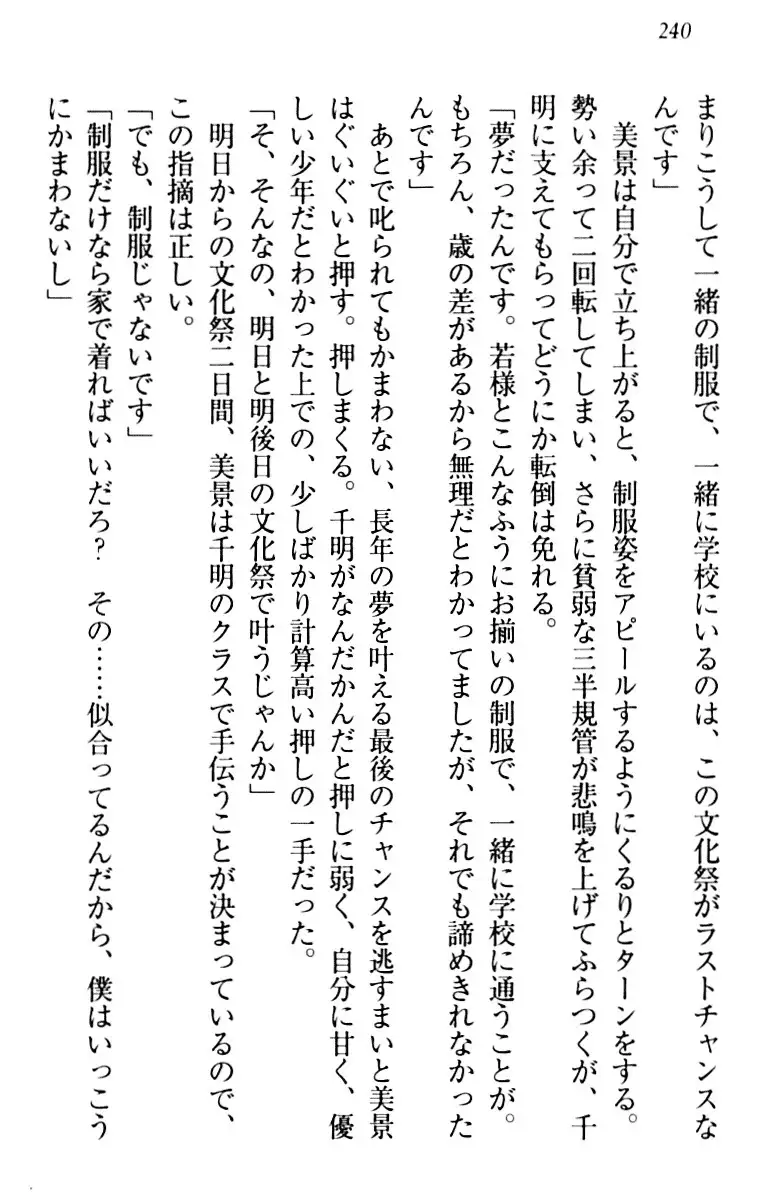 240
まりこうして一緒の制服で、一緒に学校にいるのは、この文化祭がラストチャンスな
んです」
　美景は自分で立ち上がると、制服姿をアピールするようにくるりとターンをする。
勢い余って二回転してしまい、さらに貧弱な三半規管が悲鳴を上げてふらつくが、千
明に支えてもらってどうにか転倒は免れる。
「夢だったんです。若様とこんなふうにお揃いの制服で、一緒に学校に通うことが。
もちろん、歳の差があるから無理だとわかってましたが、それでも諦めきれなかった
んです」
　あとで叱られてもかまわない、長年の夢を叶える最後のチャンスを逃すまいと美景
はぐいぐいと押す。押しまくる。千明がなんだかんだと押しに弱く、自分に甘く、優
しい少年だとわかった上での、少しばかり計算高い押しの一手だった。
「そ、そんなの、明日と明後日の文化祭で叶うじゃんか」
　明日からの文化祭二日間、美景は千明のクラスで手伝うことが決まっているので、
この指摘は正しい。
「でも、制服じゃないです」
「制服だけなら家で着ればいいだろ？　その……似合ってるんだから、僕はいっこう
にかまわないし」